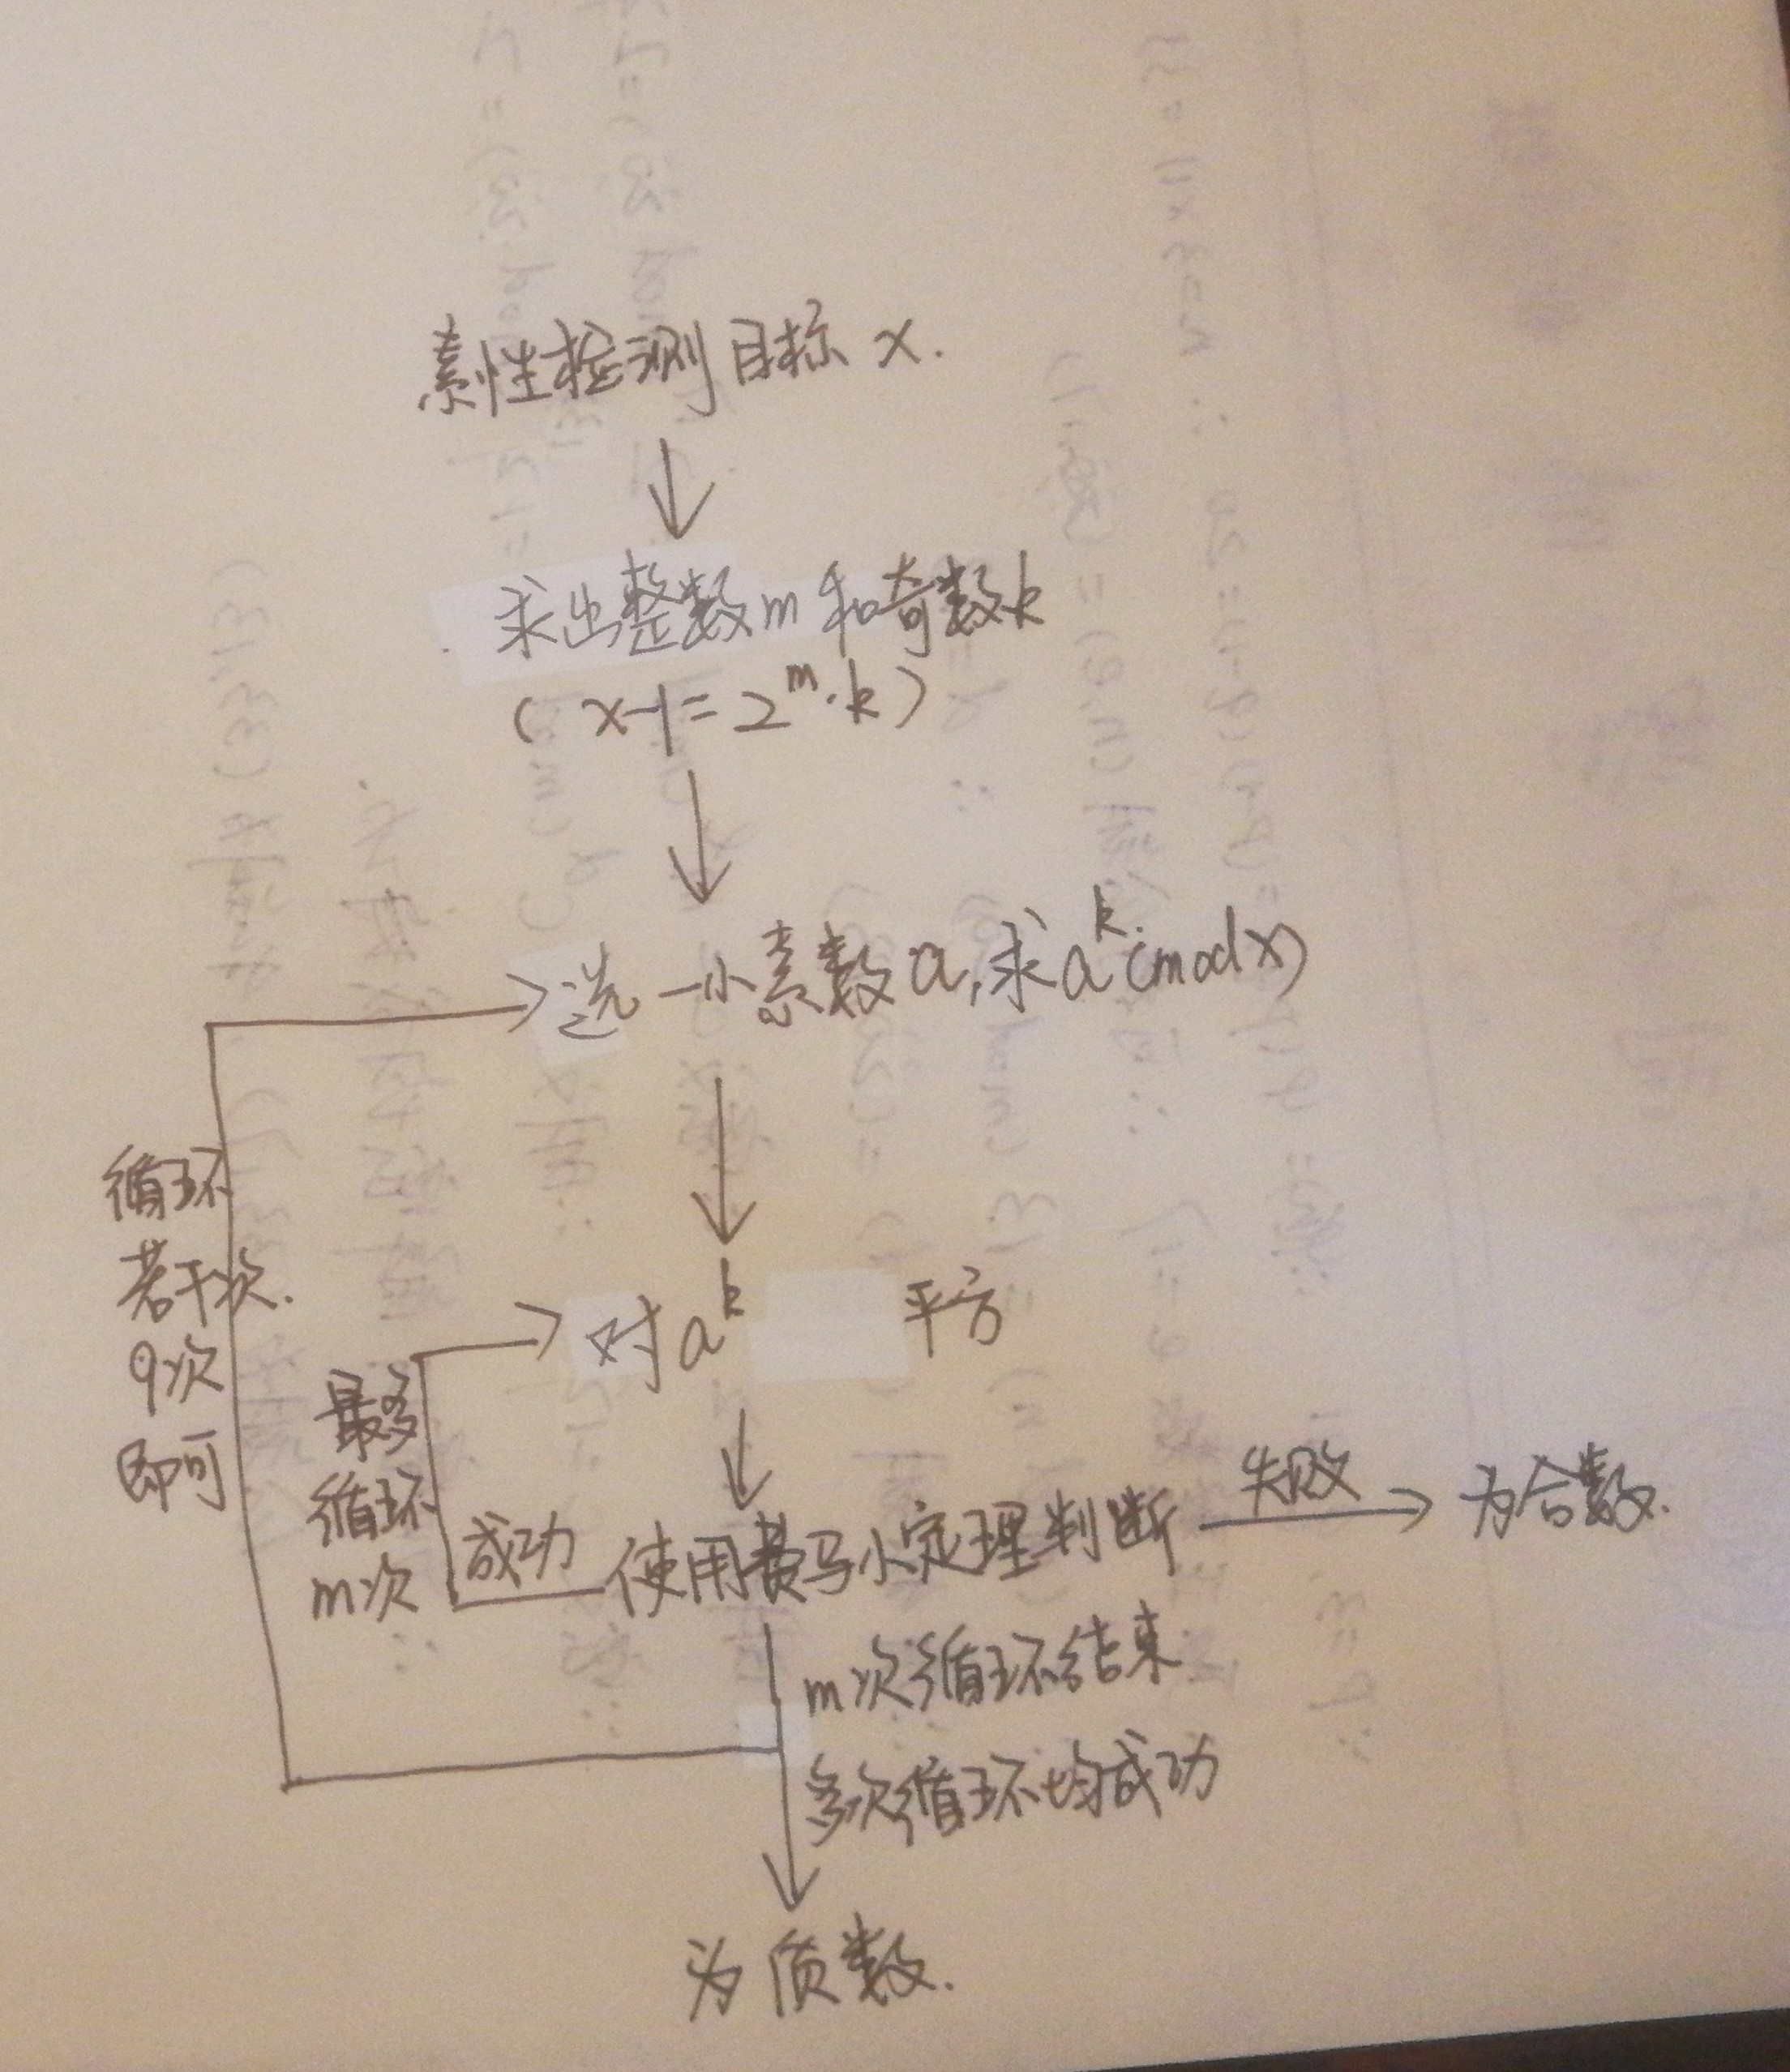 素性检测目标 x.
求出整数m和奇数k
( x-1=2^m·k )
选一小素数a,求a^k(mod x)
循环
若干次.
9次
即可
对a^k 平方
最多
循环
m次
成功
使用费马小定理判断
失败
为合数.
m次循环结束
多次循环均成功
为质数.